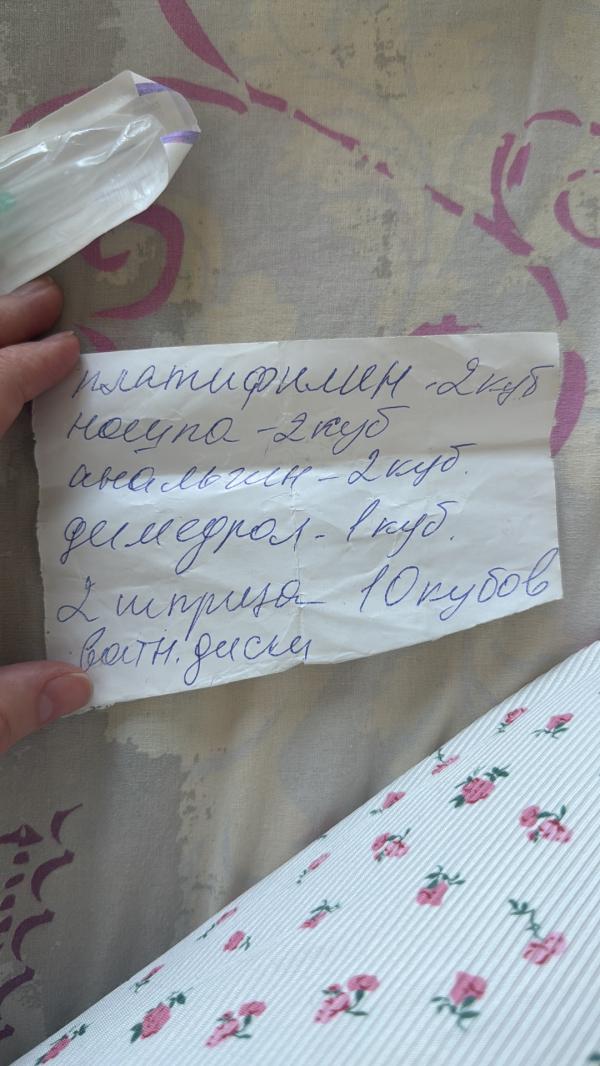 платифилин - 2 куб
ношпа - 2 куб
анальгин - 2 куб.
димедрол - 1 куб.
2 шприца - 10 кубов
ватн. диски